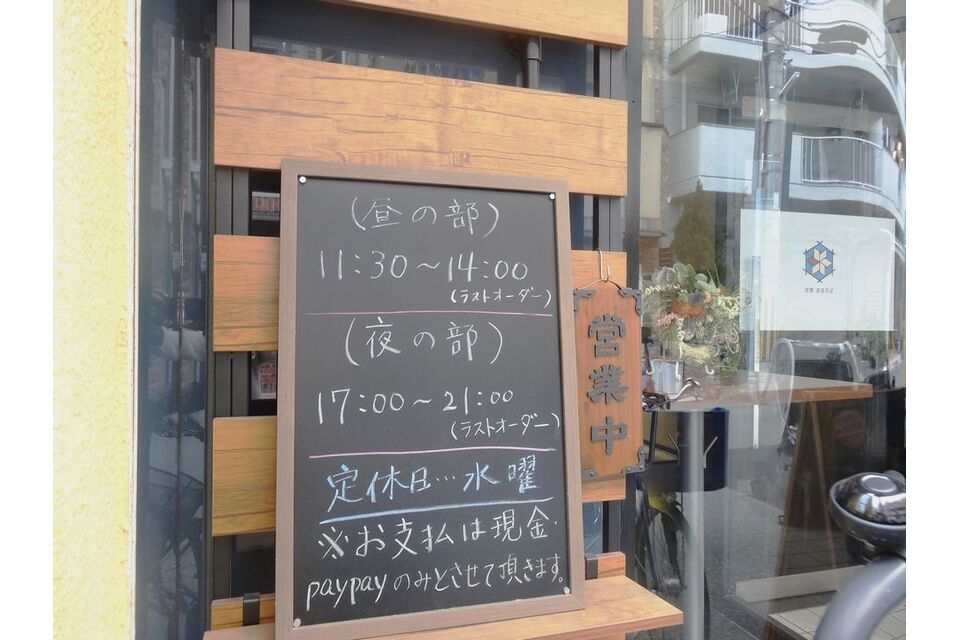 (昼の部)
11:30～14:00
(ラストオーダー)
(夜の部)
17:00～21:00
(ラストオーダー)
定休日…水曜
※お支払は現金
paypayのみとさせて頂きます。
営業中